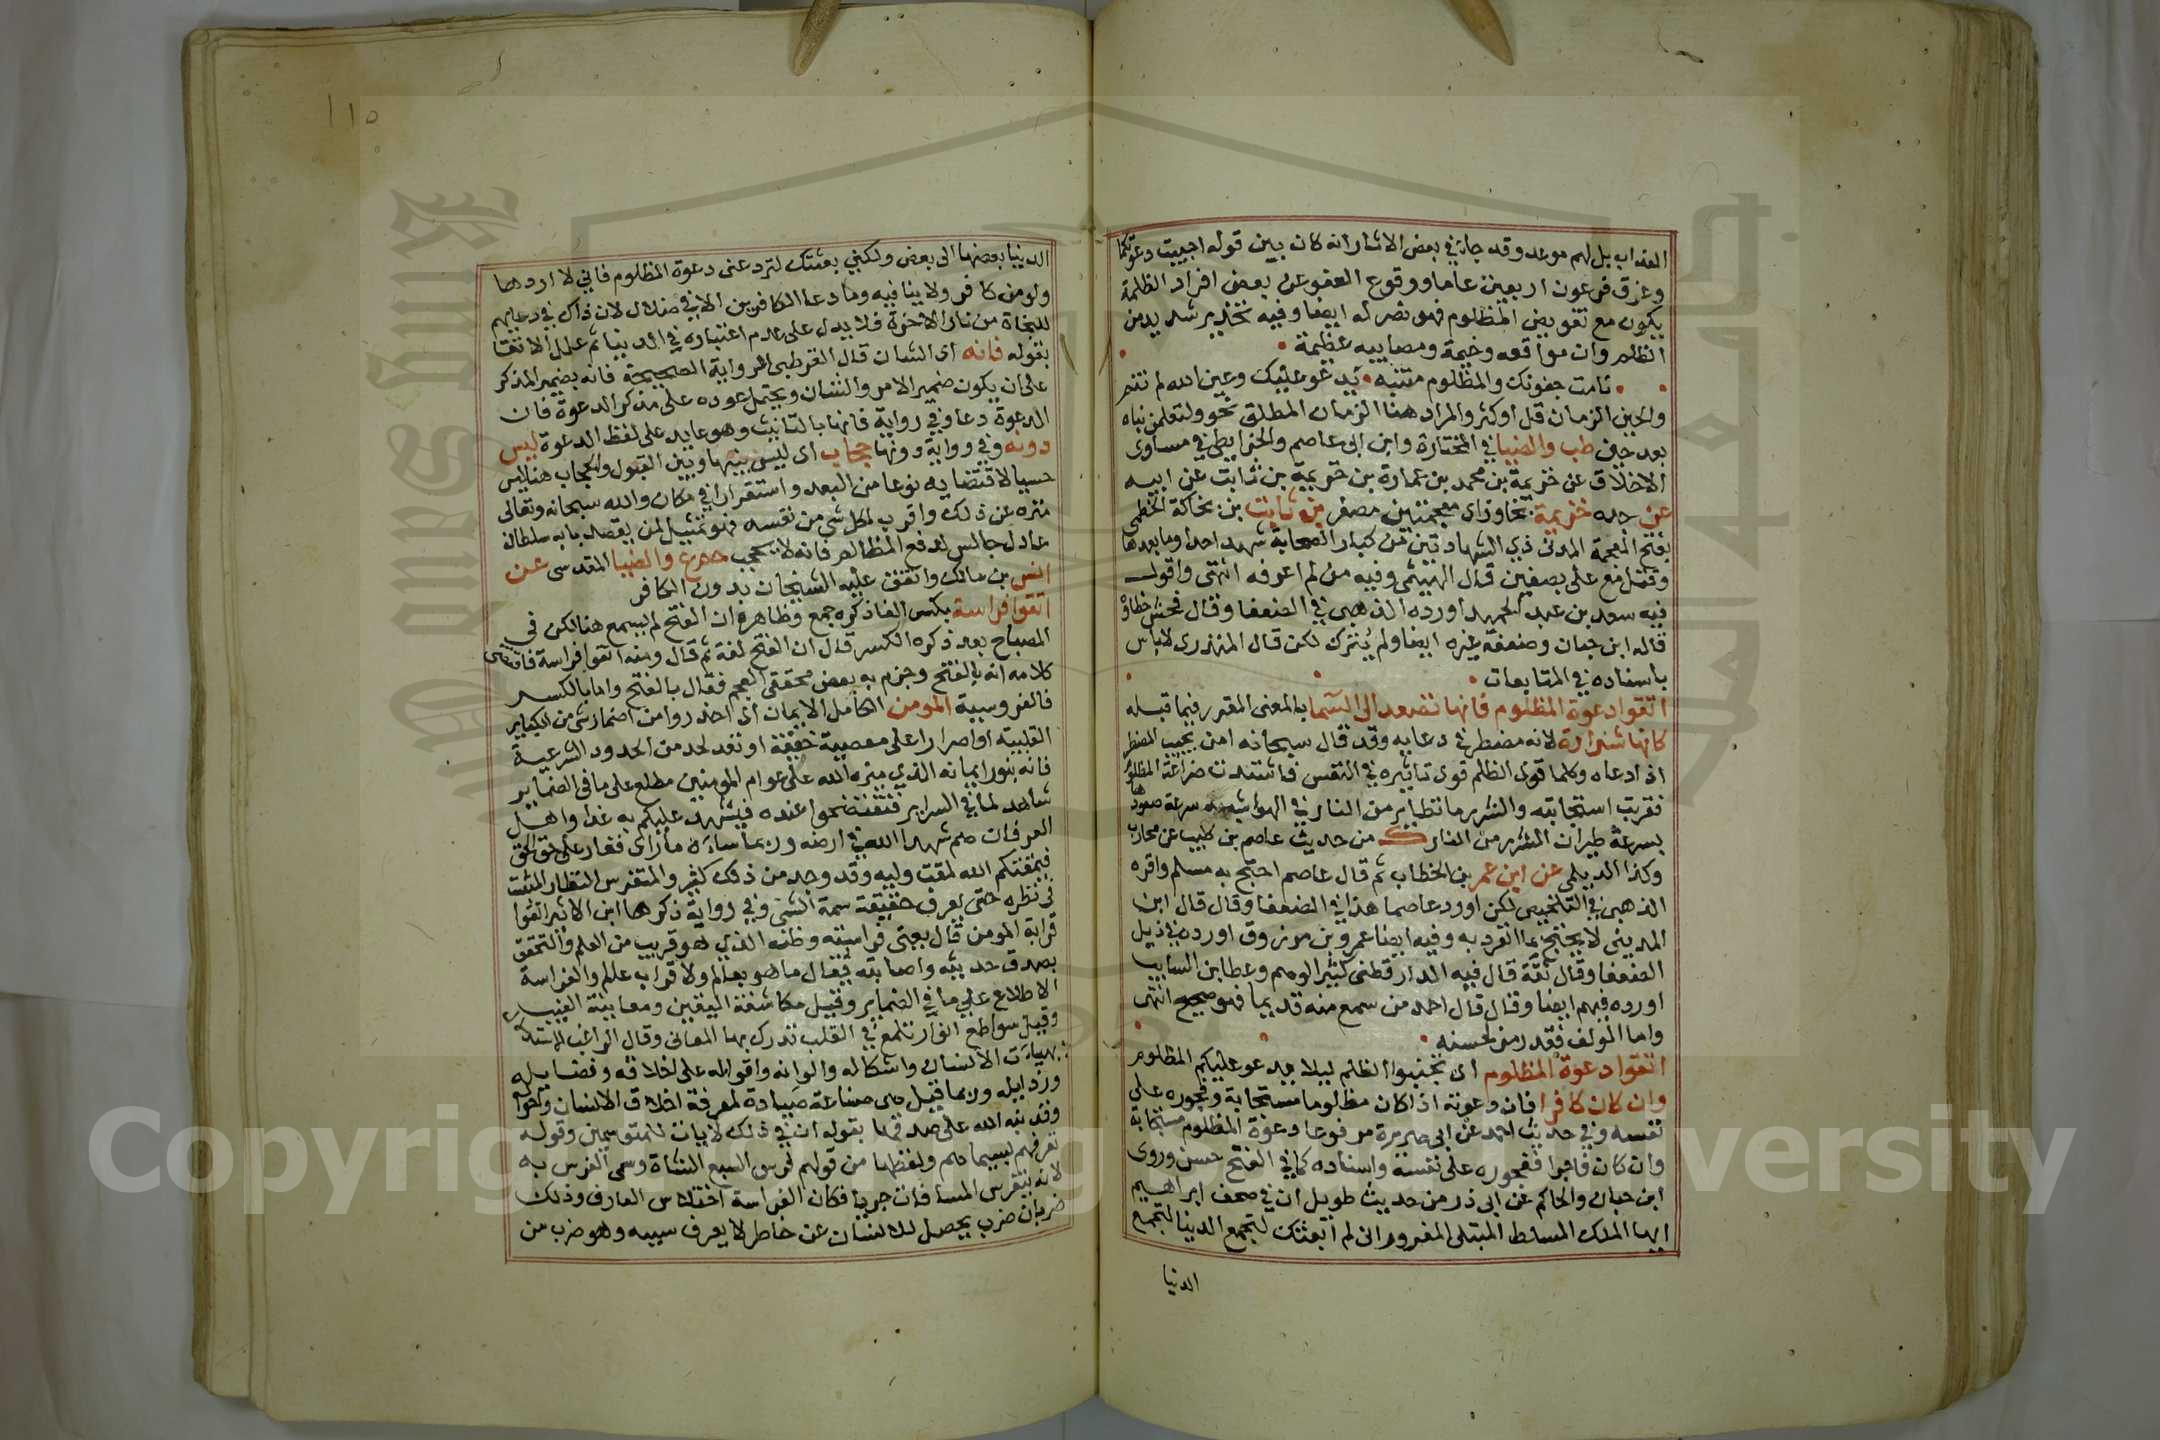 العذاب بل لهم موعد وقد جاء في بعض الاثار انه كان بين قوله اجيبت دعوتكما
وغرق فرعون اربعين عاما ووقوع العفو عن بعض افراد الظلمة
يكون مع تعويض المظلوم فهو نصر له ايضا وفيه تحذير شديد من
الظلم وان مواقعه وخيمة ومصايبه عظيمة
نامت جفونك والمظلوم منتبه يدعو عليك وعين الله لم تنم
والحين الزمان قل او كثر والمراد هنا الزمان المطلق نحو ولتعلمن نباه
بعد حين طب والضيا في المختارة وابن ابي عاصم والخرايطي في مساوى
الاخلاق عن خزيمة بن محمد بن عمارة بن خزيمة بن ثابت عن ابيه
عن جده خزيمة بخاوزاى معجمتين مصغر بن ثابت بن فاكة الخطمى
بفتح المعجمة المدنى ذي الشهادتين من كبار الصحابة شهد احدا وما بعدها
وقتل مع على بصفين قال الهيثمى وفيه من لم اعرفه انتهى واقول
فيه سعد بن عبد الحميد اورده الذهبى في الضعفا وقال فحش خطاؤه
قاله ابن حبان وضعفه غيره ايضا ولم يترك لكن قال المنذرى لاباس
باسناده في المتابعات
اتقوا دعوة المظلوم فانها تصعد الى السما بالمعنى المقرر فيما قبله
كانها شرارة لانه مضطر في دعايه وقد قال سبحانه امن يجيب المضطر
اذا دعاه وكلما قوى الظلم قوى تاثيره في النفس فاشتدت ضراعة المظلوم
فقربت استجابته والشرر ما تطاير من النار في الهوا شبه سرعة صعودها
بسرعة طيران الشرر من النار ك من حديث عاصم بن كليب عن محارب
وكذا الديلمى عن ابن عمر بن الخطاب ثم قال عاصم احتج به مسلم واقره
الذهبى في التلخيص لكن اورد عاصما هذا في الضعفا وقال قال ابن
المدينى لا يحتج بما انفرد به وفيه ايضا عمرو بن مرزوق اورده في ذيل
الضعفا وقال ثقة قال فيه الدارقطنى كثير الوهم وعطا بن السايب
اورده فيهم ايضا وقال قال احمد من سمع منه قديما فهو صحيح انتهى
واما المولف فقد رمز لحسنه
اتقوا دعوة المظلوم اى تجنبوا الظلم ليلا يدعو عليكم المظلوم
وان كان كافرا فان دعوته اذا كان مظلوما مستجابة وفجوره على
نفسه وفي حديث احمد عن ابى هريرة مرفوعا دعوة المظلوم مستجابة
وان كان فاجرا ففجوره على نفسه واسناده كما في الفتح حسن وروى
ابن حبان والحاكم عن ابى ذر من حديث طويل ان في صحف ابراهيم
ايها الملك المسلط المبتلى المغرور انى لم ابعثك لتجمع الدنيا لتجمع
الدنيا
١١٥
الدنيا بعضها الى بعض ولكني بعثتك لترد عنى دعوة المظلوم فاني لا اردها
ولو من كافر ولا ينافيه وما دعا الكافرين الا في ضلال لان ذاك في دعايهم
للنجاة من نار الاخرة فلا يدل على عدم اعتباره في الدنيا ثم علل الاتقا
بقوله فانه اى الشان قال القرطبى الرواية الصحيحة فانه بضمير المذكر
على ان يكون ضمير الامر والشان ويحتمل عوده على مذكر الدعوة فان
الدعوة دعا وفي رواية فانها بالتانيث وهو عايد على لفظ الدعوة ليس
دونه وفي رواية دونها حجاب اى ليس بينها وبين القبول والحجاب هنا ليس
حسيا لاقتضايه نوعا من البعد واستقرارا في مكان والله سبحانه وتعالى
منزه عن ذلك واقرب لكل شي من نفسه فهو تمثيل لمن يقصد بابه سلطان
عادل جالس لدفع المظالم فانه لا يحجب حم ع والضيا المقدسى عن
انس بن مالك واتفق عليه الشيخان بدون الكافر
اتقوا فراسة بكسر الفا ذكره جمع وظاهره ان الفتح لم يسمع هنا لكن في
المصباح بعد ذكره الكسر قال ان الفتح لغة ثم قال ومنه اتقوا فراسة فاقتضى
كلامه انه بالفتح وجزم به بعض محققى العجم فقال بالفتح واما بالكسر
فالفروسية المومن الكامل الايمان اى احذروا من اضمار شي من الكباير
القلبية او اصرارا على معصية خفية او تعد لحد من الحدود الشرعية
فانه بنور ايمانه الذي ميزه الله على عوام المومنين مطلع على ما في الضماير
شاهد لما في السراير فتفتضحوا عنده فيشهد عليكم به غدا واهل
العرفان هم شهدا الله في ارضه وربما ساءه ما راى فغار على حق الحق
فيمقتكم الله لمقت وليه وقد وجد من ذلك كثير والمتفرس النظار المتثبت
في نظره حتى يعرف حقيقة سمة الشى وفي رواية ذكرها ابن الاثير اتقوا
قرابة المومن قال يعنى فراسته وظنه الذي هو قريب من العلم والتحقق
بصدق حدسه واصابته يقال ما هو بعالم ولا قراب عالم والفراسة
الاطلاع على ما في الضماير وقيل مكاشفة اليقين ومعاينة الغيب
وقيل سواطع انوار تلمع في القلب تدرك بها المعانى وقال الراغب الاستدلال
بهيات الانسان واشكاله والوانه واقواله على اخلاقه وفضايله
ورذايله وربما قيل هى صناعة صيادة لمعرفة اخلاق الانسان واحواله
وقد نبه الله على صدقها بقوله ان في ذلك لايات للمتوسمين وقوله
تعرفهم بسيماهم ولفظها من قولهم فرس السبع الشاة وسمى الفرس به
لانه يتفرس المسافات جريا فكان الفراسة اختلاس العارف وذلك
ضربان ضرب يحصل للانسان عن خاطر لا يعرف سببه وهو ضرب من
Copyright © King Saud University
King Saud University